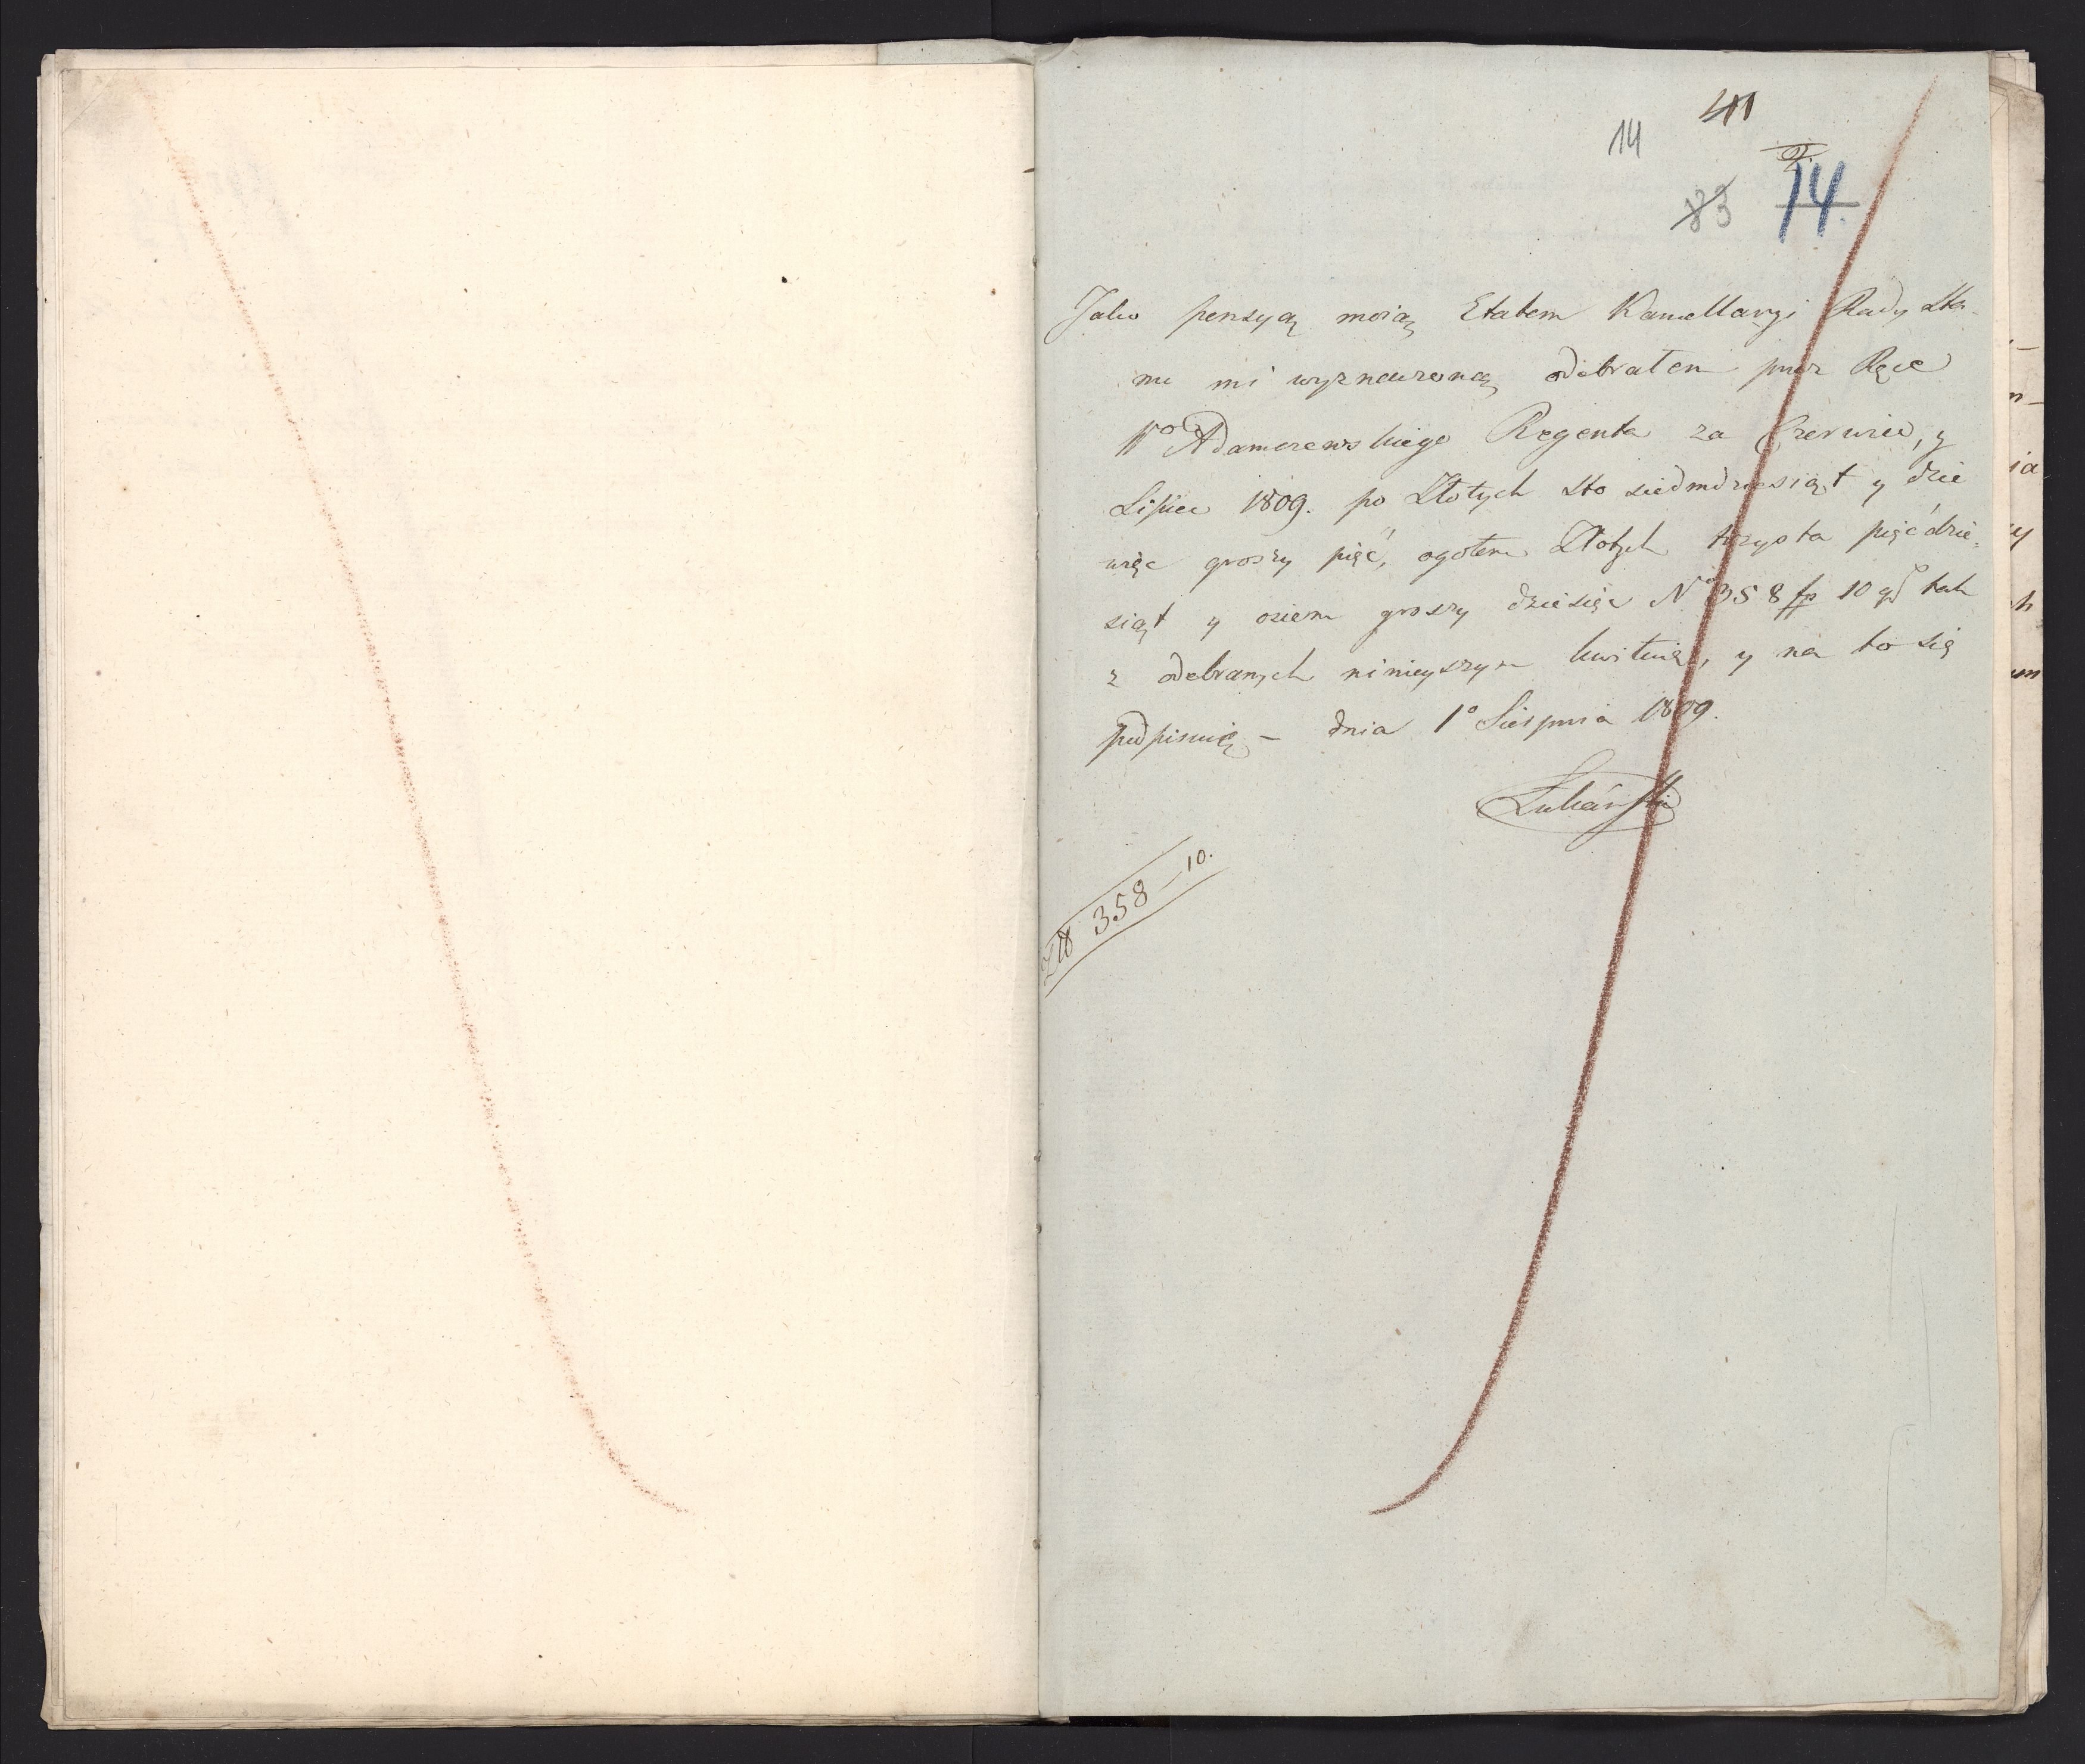 41
14
2.
83
14
Jako pensyą moią Etatem Kancellaryi Rady Sta-
nu mi wyznaczoną odebrałem przez Ręce
Wo Adamczewskiego Regenta za Czerwiec, y
Lipiec 1809. po Złotych sto siedmdziesiąt y dzie
więc groszy pięć, ogołem Złotych trzysta pięćdzie-
siąt y osiem groszy dziesięć No 358 fp 10 gr tak
z odebranych ninieyszym kwituię, y na to się
podpisuię - dnia 1o Sierpnia 1809.
Łukański
Zł 358 - 10.